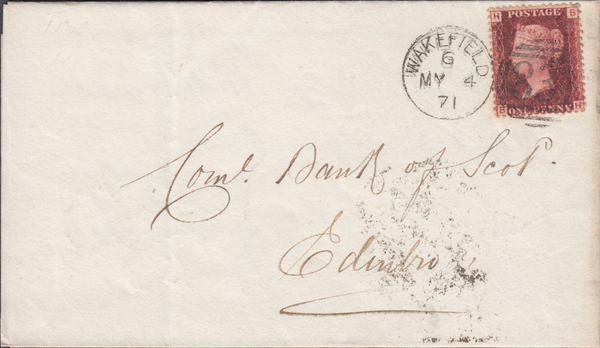 H B
POSTAGE
WAKEFIELD
G
MY 4
71
ONE PENNY
B H
Coml. Bank of Scot.
Edinbro